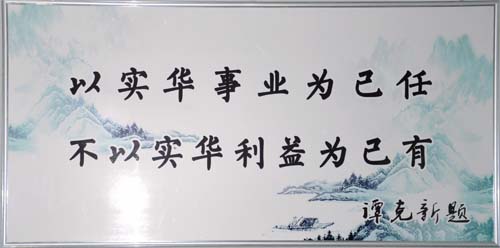 以实华事业为己任
不以实华利益为己有
谭克新题